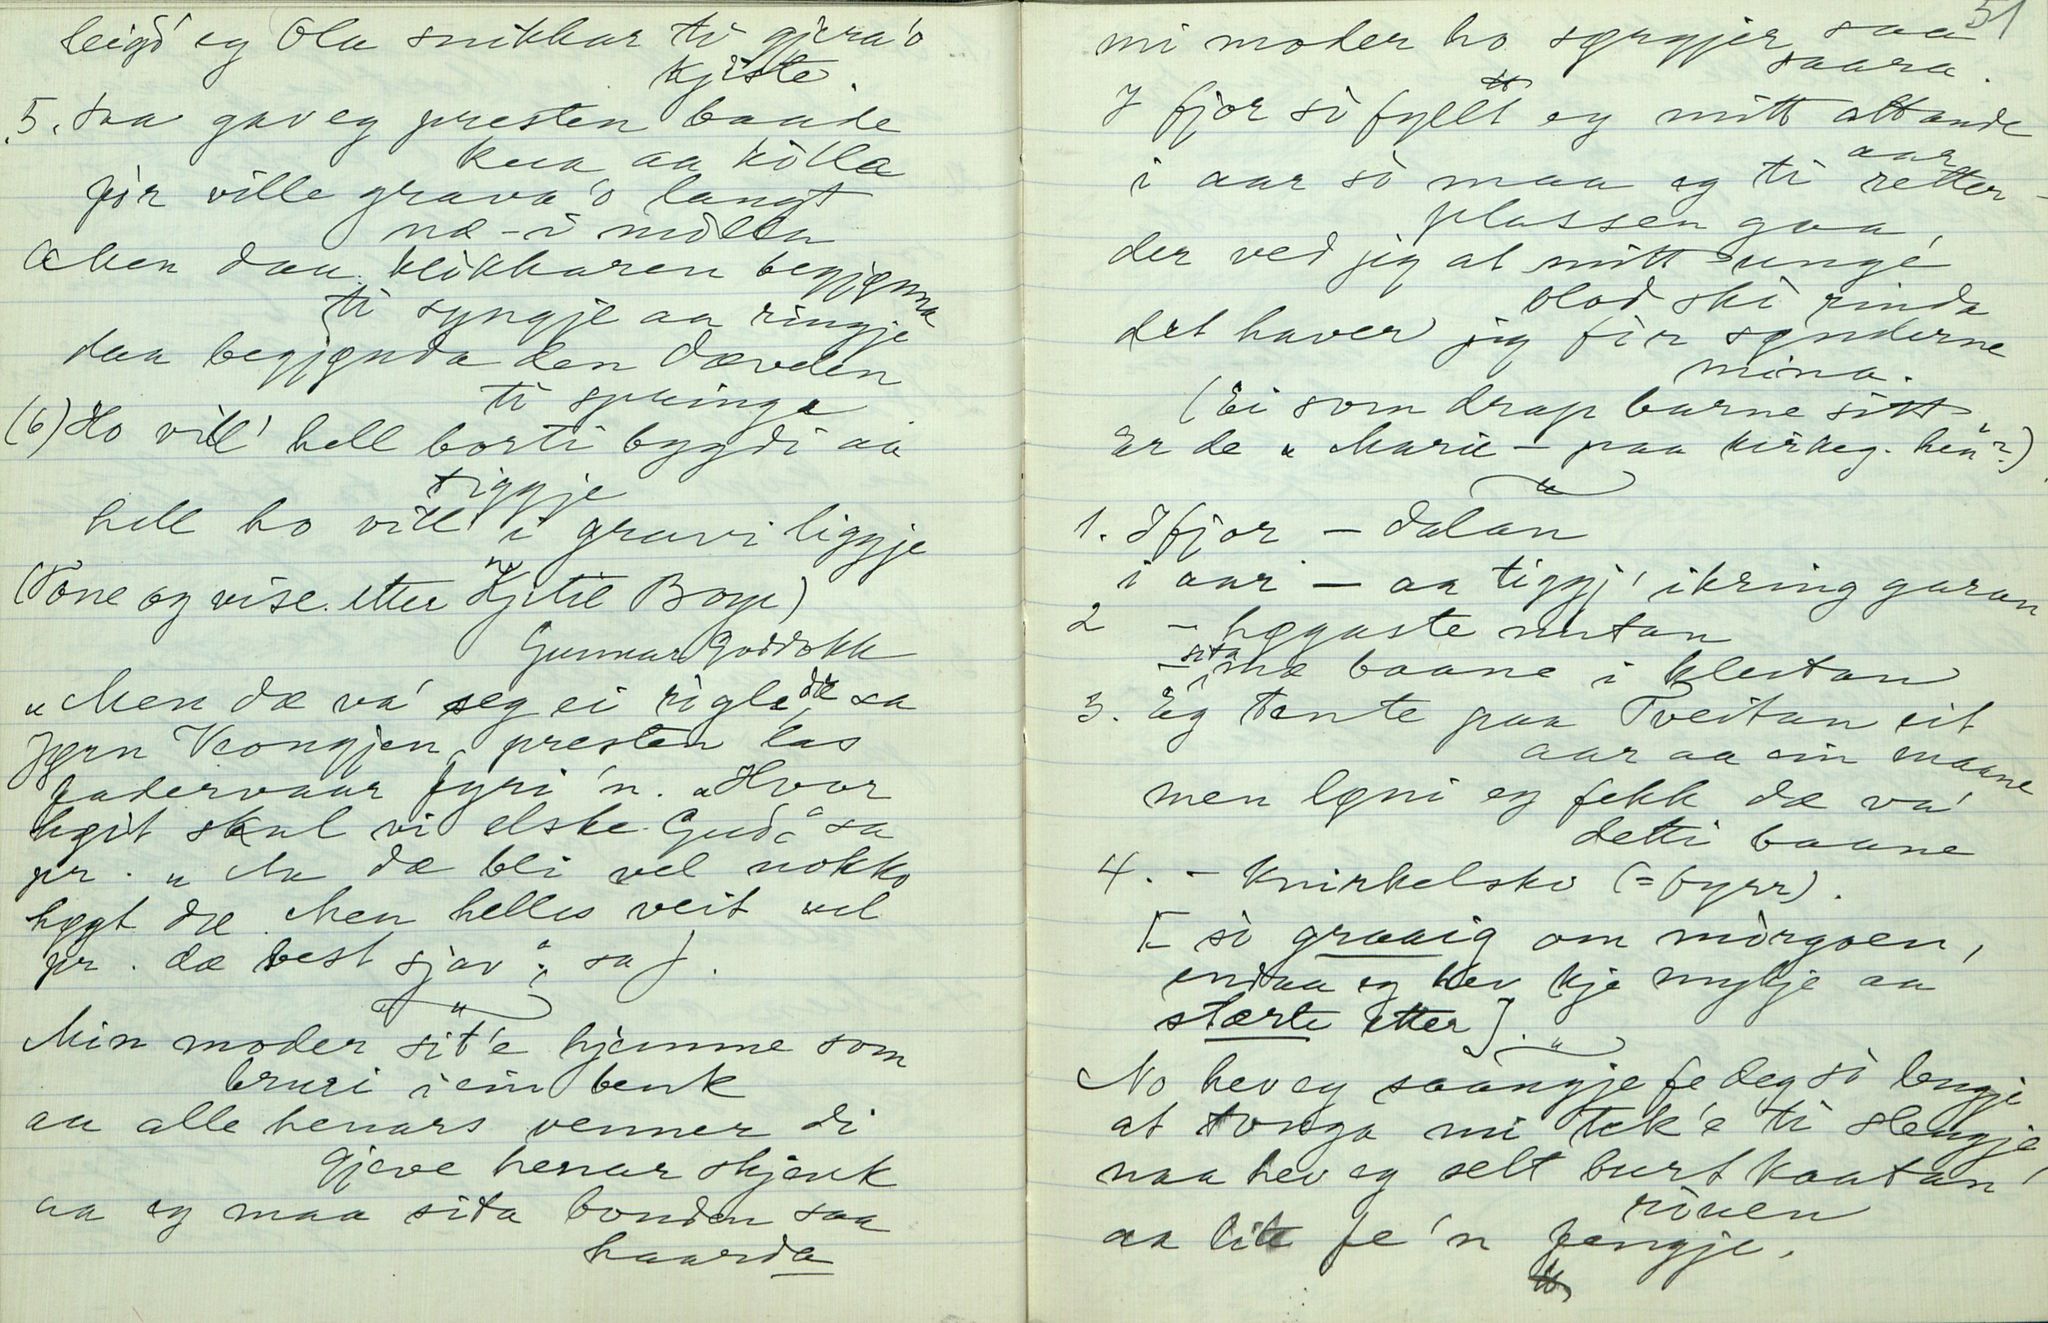 leigd' eg Ola snikkar ti gjera'o
kjiste.
5. Saa gav eg presten baade
kua aa kolla
for ville grava'o langt
næ-i molla
Men daa klokkaren begjynna
ti syngje aa ringje
daa begjynda den dævelen
ti springa
(6) Ho vill' hell borti bygdi aa
tiggje
hell ho vill i gravi liggje
(Tone og vise etter Kjetil Boye)
Gunnar Goddokk
„Men dæ va' seg ei rigle dæ sa
Jørn Kongjen, presten las
fadervaar fyri 'n. „Hvor
høit skal vi elske Gud“ sa
pr. „Aa dæ bli vel nokko
høgt dæ. Men helles veit vel
pr. dæ best sjøv“, sa J.
„
Min moder sit'e hjemme som
bruri i ein benk
aa alle henars venner di
gjeve henar skjenk
aa eg maa sita bonden saa
haarda
51
mi moder ho sørgjer saa
saara.
I fjor så fyllt eg mitt attande
aar
i aar så maa eg ti retter-
plassen gaa,
der ved jeg at mitt unge
blod ski rinda
det haver jeg fir synderne
mina.
(Ei som drap barne sitt
Er de „Marie – paa kirkeg. hen“?)
„
1. Ifjor – dalan
i aar – aa tiggj' ikring garan
2 – høgaste nutan
– sita mæ baane i klutan
3. Eg tente paa Tveitan eit
aar aa ein maane
men løni eg fekk dæ va'
detti baane
4. – Knirkelsko (= fyrr).
[– så graaig om mórgoen,
endaa eg hev kje mykje aa
stærte etter]. „
No hev eg saangje fe deg så lengje
at tonga mi tek'e ti slengje
naa hev eg selt burt kaatan'
roven
aa lite fe'n fengje.